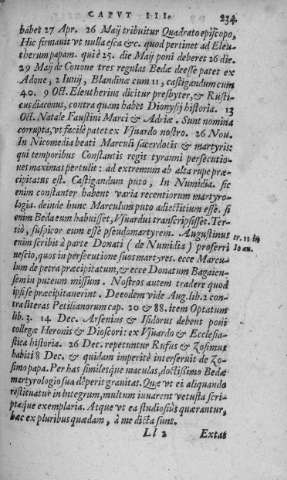 CAPVT III. 234.
habet 27 Apr. 26 Maij tribuitur Quadrato episcopo,
Hic firmanit vt nulla esca &c. quod pertinet ad Eleu-
therum papam. qui è 25. die Maij poni deberet 26 die.
29 Maij de Conone tres regulas Bedæ deesse patet ex
Adone, 2 Iunij, Blandina cum 11, castigandum cum
40. 9 Oct. Eleutherius dicitur presbyter, & Rusti-
cus diaconus, contra quam habet Dionysij historia. 13
Oct. Natale Faustini Marci & Adriæ. Sunt nomina
corrupta, vt facilè patet ex Vsuardo nostro. 26 Nou.
In Nicomedia beati Marculi sacerdotis & martyris:
qui temporibus Constantis regis tyranni persecutio-
nes maximas pertulit: ad extremum ab alta rupe præ-
cipitatus est. Castigandum puto, In Numidia. sic
enim constanter habent varia recentiorum martyro-
logia. deinde hunc Marculum puto adiectitium esse. si
enim Beda eum habuisset, Vsuardus transcripsisset. Ter-
tiò, suspicor eum esse pseudomartyrem. Augustinus
enim scribit à parte Donati (de Numidia) proferri
nescio, quos in persecutione suos martyres. ecce Marcu-
lum de petra præcipitatum, & ecce Donatum Bagaien-
sem in puteum missum. Nostros autem tradere quod
ipsi se præcipitauerint. De eodem vide Aug. lib. 2 con-
tra literas Petiliani cap. 20 & 88. item Optatum
lib. 3. 14 Dec. Arsenius & Isidorus debent poni
collegæ Heronis & Dioscori ex Vsuardo & Ecclesia-
stica historia. 26 Dec. repetuntur Rufus & Zosimus
habiti 8 Dec. & quidam imperitè interseruit de Zo-
simo papa. Per has similesque maculas, doctissimo Bedæ
martyrologio sua deperit granitas. Quæ vt ei aliquando
restituatur in integrum, multum iuuarent vetusta scri-
ptaque exemplaria. Atque vt ea studiosiùs quærantur,
hæc ex pluribus quædam, à me dicta sunt.
Ll 2 Extat
tr. 11 in
Ioan.